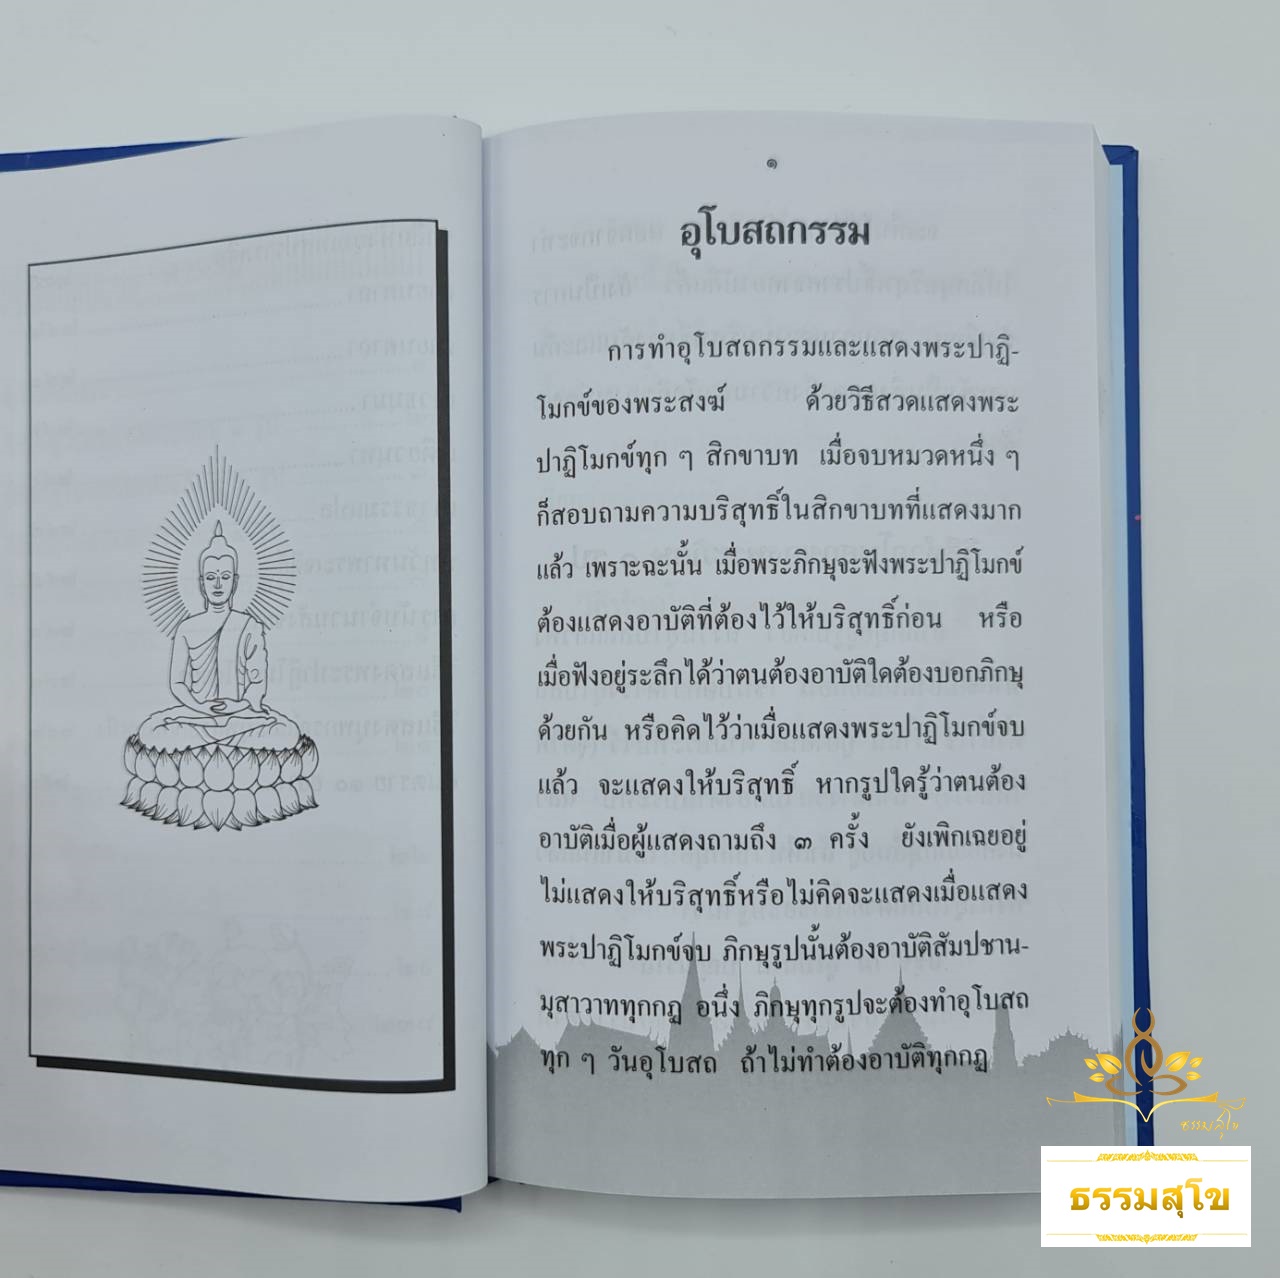 ๑
อุโบสถกรรม
การทำอุโบสถกรรมและแสดงพระปาฏิ-
โมกข์ของพระสงฆ์ ด้วยวิธีสวดแสดงพระ
ปาฏิโมกข์ทุก ๆ สิกขาบท เมื่อจบหมวดหนึ่ง ๆ
ก็สอบถามความบริสุทธิ์ในสิกขาบทที่แสดงมาก
แล้ว เพราะฉะนั้น เมื่อพระภิกษุจะฟังพระปาฏิโมกข์
ต้องแสดงอาบัติที่ต้องไว้ให้บริสุทธิ์ก่อน หรือ
เมื่อฟังอยู่ระลึกได้ว่าตนต้องอาบัติใดต้องบอกภิกษุ
ด้วยกัน หรือคิดไว้ว่าเมื่อแสดงพระปาฏิโมกข์จบ
แล้ว จะแสดงให้บริสุทธิ์ หากรูปใดรู้ว่าตนต้อง
อาบัติเมื่อผู้แสดงถามถึง ๓ ครั้ง ยังเพิกเฉยอยู่
ไม่แสดงให้บริสุทธิ์หรือไม่คิดจะแสดงเมื่อแสดง
พระปาฏิโมกข์จบ ภิกษุรูปนั้นต้องอาบัติสัมปชาน-
มุสาวาททุกกฏ อนึ่ง ภิกษุทุกรูปจะต้องทำอุโบสถ
ทุก ๆ วันอุโบสถ ถ้าไม่ทำต้องอาบัติทุกกฏ
ธรรมสุโข
ธรรมสุโข